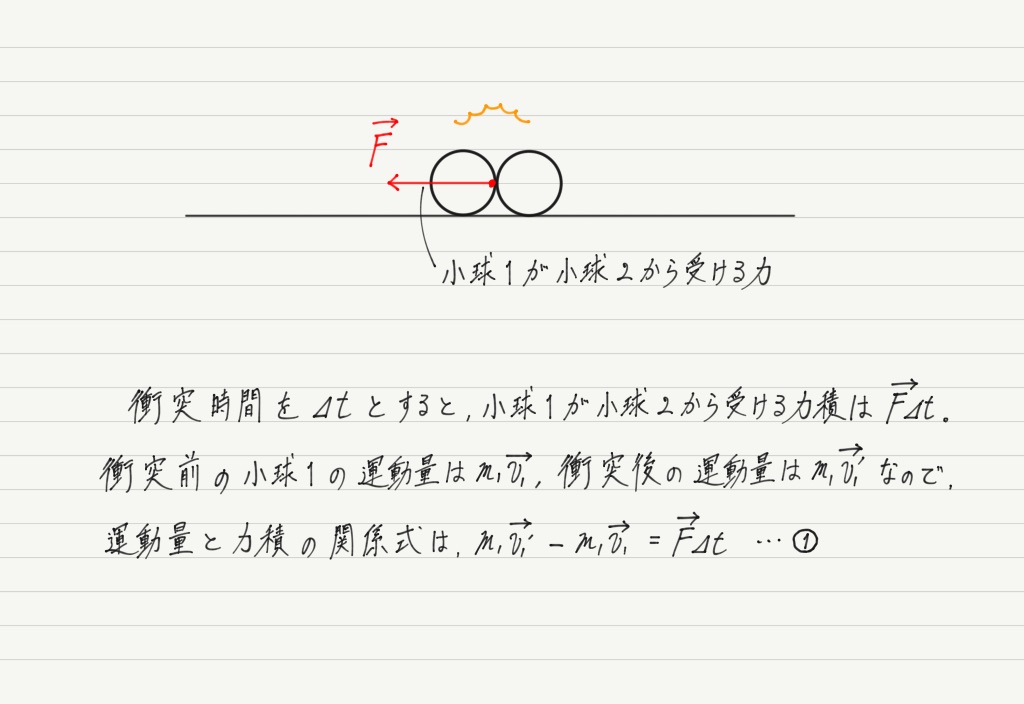 F⃗
小球1が小球2から受ける力
衝突時間をΔtとすると,小球1が小球2から受ける力積はF⃗Δt。
衝突前の小球1の運動量はm₁v⃗₁,衝突後の運動量はm₁v⃗₁′なので,
運動量と力積の関係式は,m₁v⃗₁′−m₁v⃗₁=F⃗Δt …①